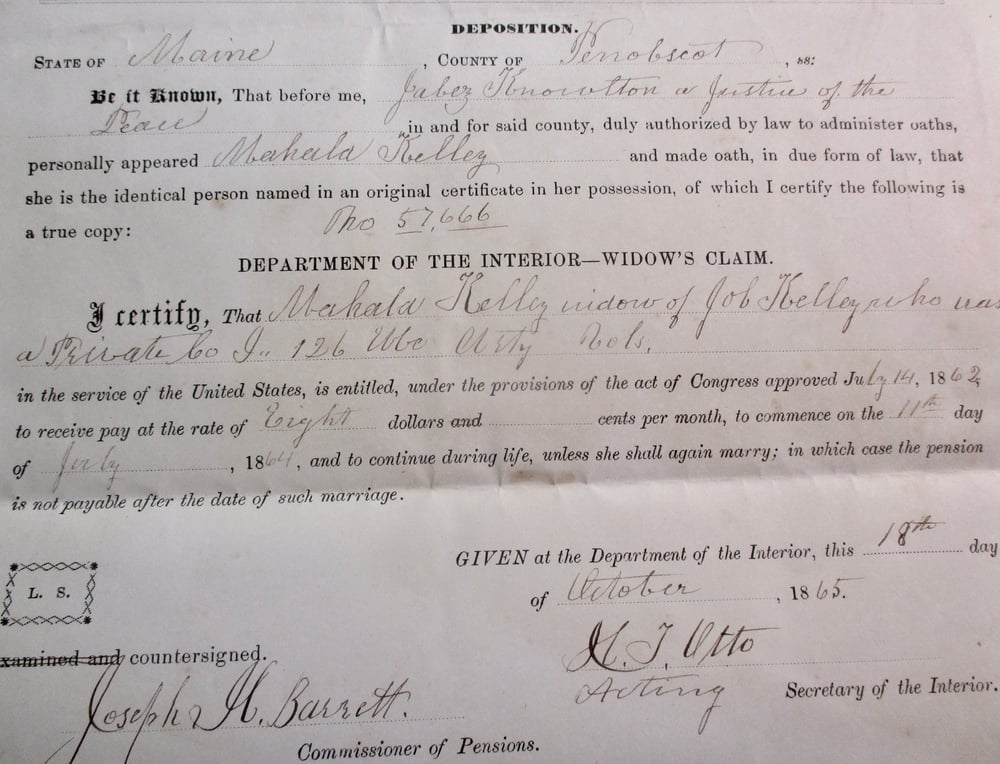 DEPOSITION.
STATE OF Maine, COUNTY OF Penobscot, ss:
Be it Known, That before me, Jabez Knowlton a Justice of the
Peace in and for said county, duly authorized by law to administer oaths,
personally appeared Mahala Kelley and made oath, in due form of law, that
she is the identical person named in an original certificate in her possession, of which I certify the following is
a true copy: No 57,666
DEPARTMENT OF THE INTERIOR—WIDOW'S CLAIM.
I certify, That Mahala Kelley widow of Job Kelley who was
a Private Co I., 126 Vols.
in the service of the United States, is entitled, under the provisions of the act of Congress approved July 14, 1862,
to receive pay at the rate of Eight dollars and cents per month, to commence on the 11th day
of July, 1864, and to continue during life, unless she shall again marry; in which case the pension
is not payable after the date of such marriage.
GIVEN at the Department of the Interior, this 18th day
of October, 1865.
L. S.
H. T. Otto
xamined and countersigned.
Acting Secretary of the Interior.
Joseph H. Barrett.
Commissioner of Pensions.